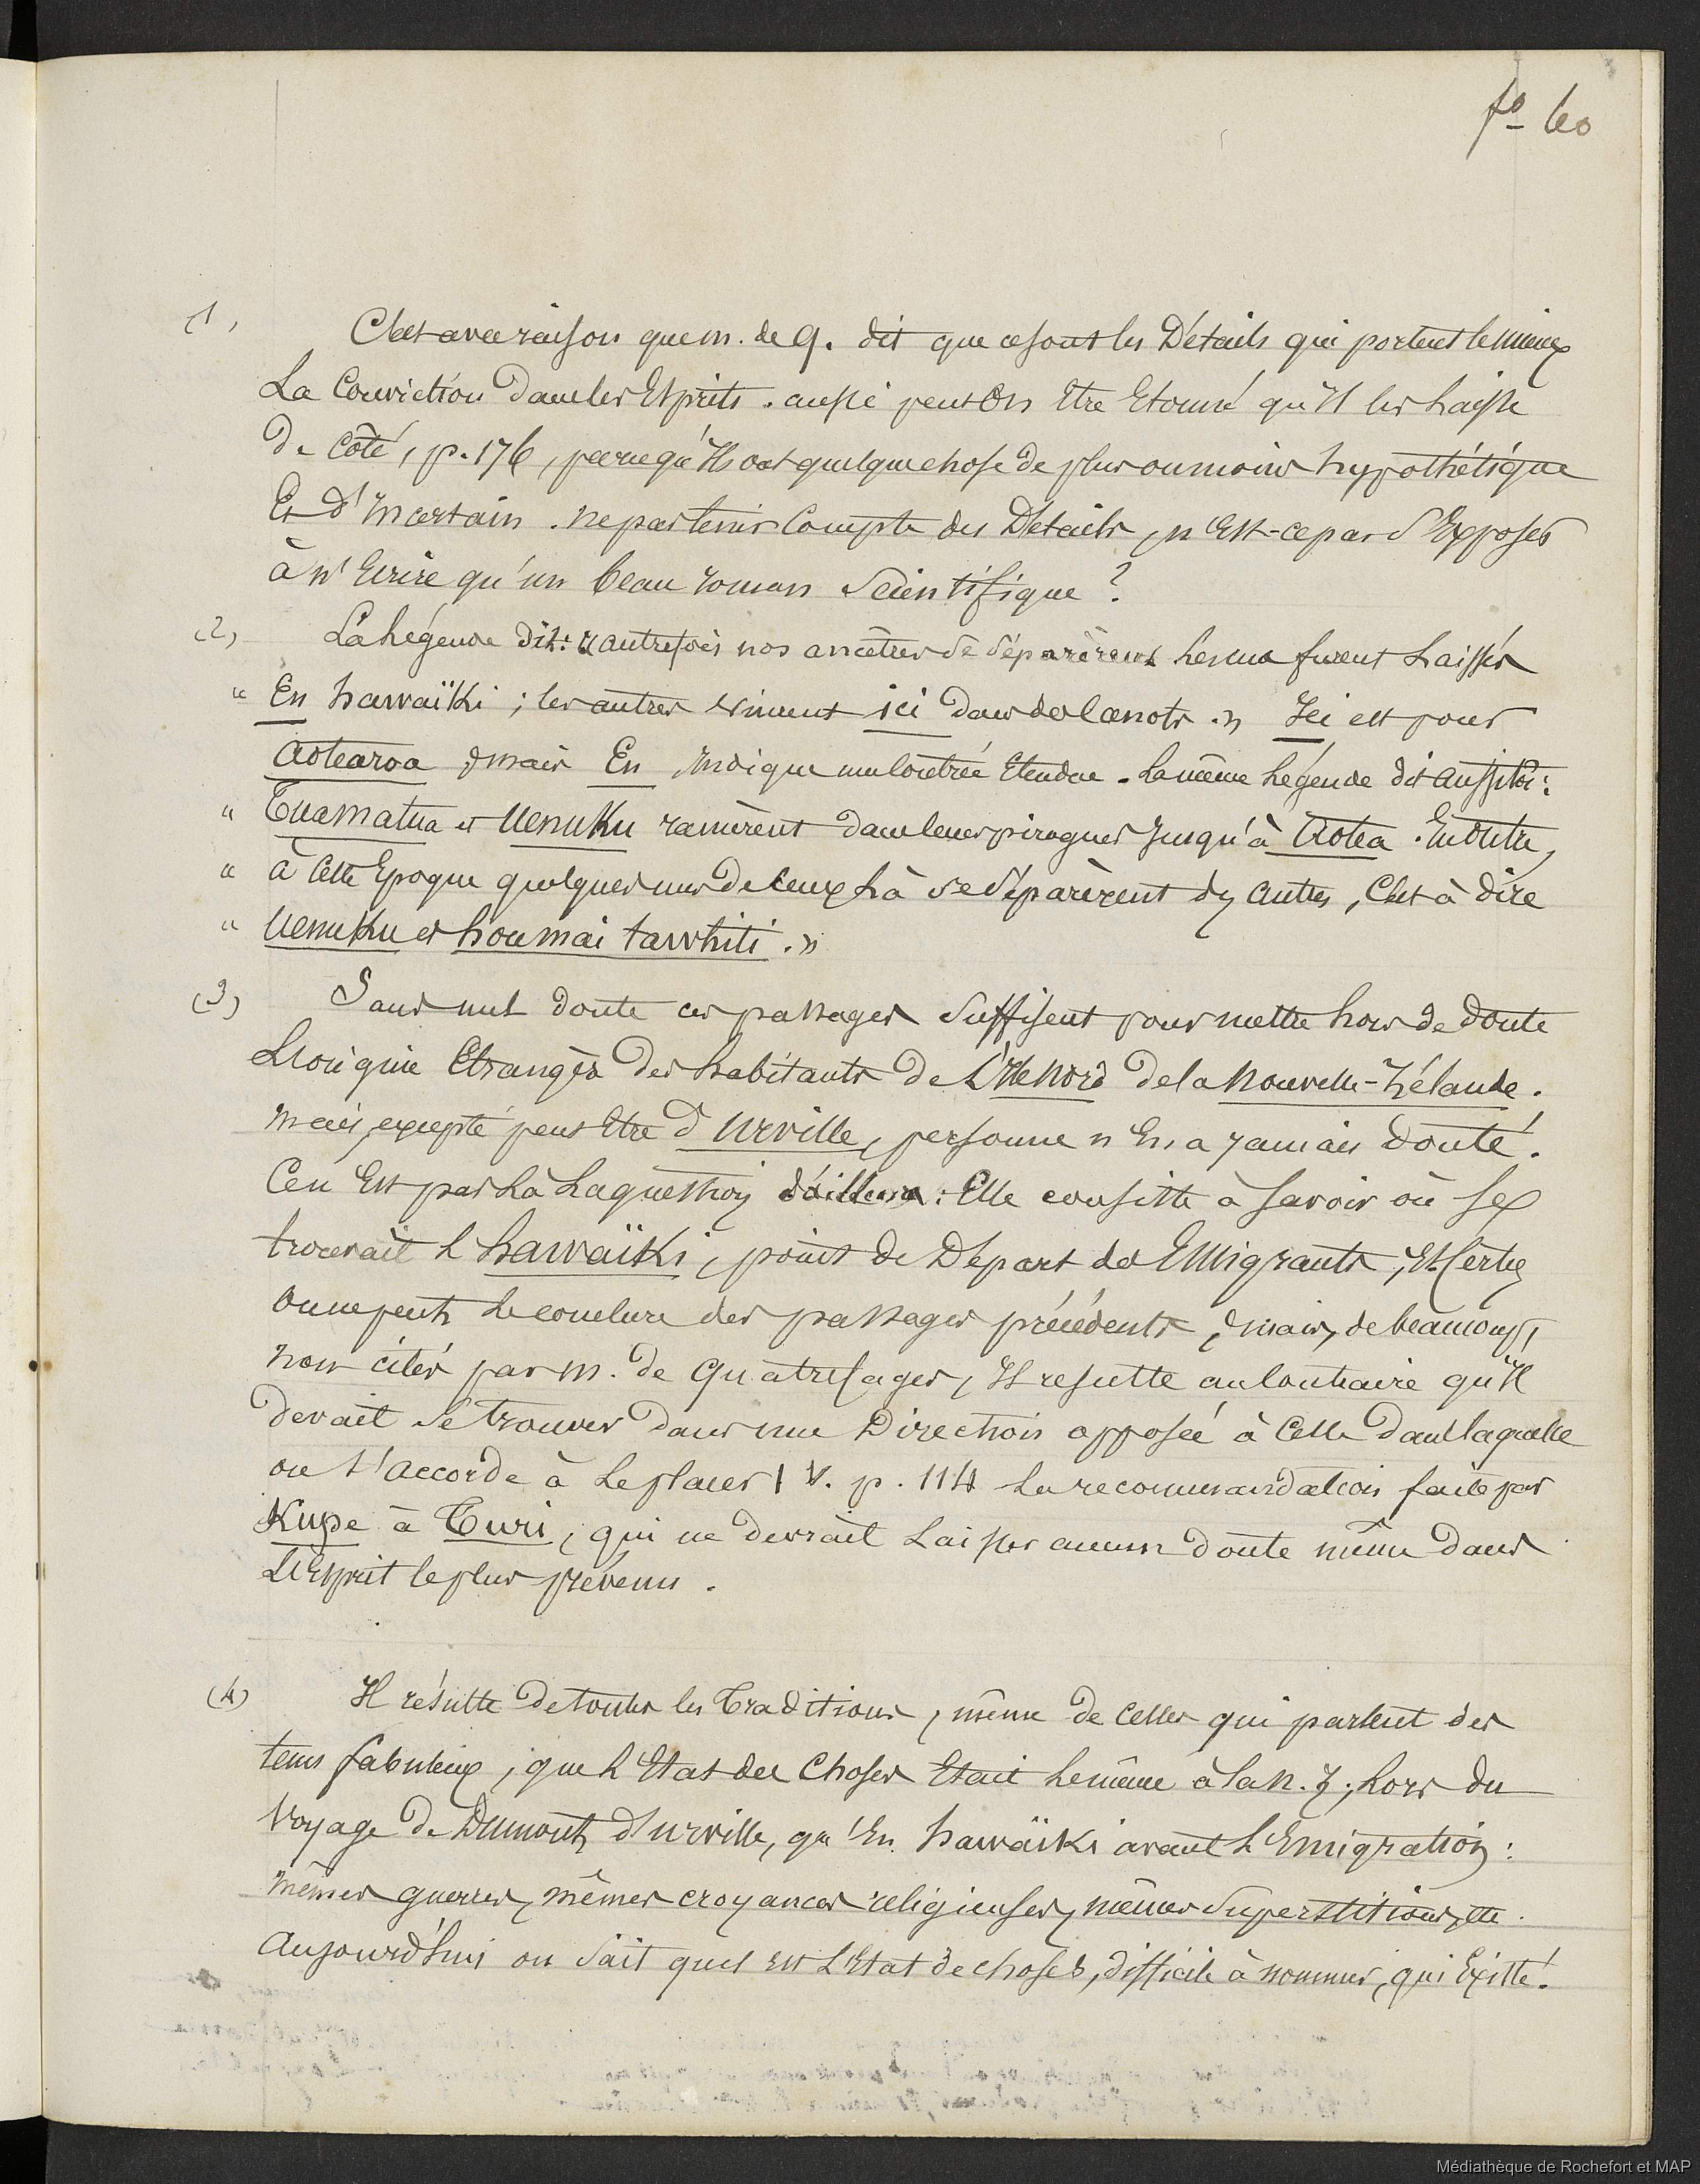 fo 60
(1) C'est avec raison que m. de Q. dit que ce sont les Détails qui portent le mieux
La Conviction dans les Esprits. aussi peut On Etre Etonné qu'il les Laisse
De Côté, p. 176, parce qu'Ils ont quelque chose de plus ou moins hypothétique
Et d'Incertain. ne pas tenir Compte des Détails, n'Est-ce pas s'Exposer
à n'Ecrire qu'un beau roman Scientifique ?
(2) La Légende dit: « autrefois nos ancêtres se séparèrent Les uns furent Laissés
" En hawaïki ; les autres vinrent ici dans des Canots. » Ici est pour
Aotearoa & mais En Indique une Contrée Etendue. La même Légende dit aussitôt :
" Tuamatua et Uenuku ramèrent dans leurs pirogues Jusqu'à Aotea. Ensuite,
" à Cette Epoque quelques uns de Ceux Là se séparèrent des autres, C'est à dire
" Uenuku et houmai tawhiti. »
(3) Sans nul doute ces passages Suffisent pour mettre hors de doute
L'origine Etrangère des habitants de L'Ile Nord de la Nouvelle-Zélande.
mais, excepté peut Etre d'Urville, personne n'En a Jamais Douté.
Ce n'Est pas Là La question d'ailleurs : Elle consiste à Savoir où Se
trouvait L'hawaïki, point de Départ des Emigrants, Et Certes
On ne peut Le conclure des passages précédents, & mais, de beaucoup,
non cités par m. de Quatrefages, Il resulte au Contraire qu'Il
devait Se trouver dans une Direction opposée à Celle dans laquelle
on S'accorde à Le placer V. p. 114 La recommandation faite par
Kupe à Turi, qui ne devrait Laisser aucun doute même dans
L'Esprit le plus prévenu.
(4) Il résulte de toutes les Traditions, même de Celles qui parlent des
tems fabuleux, que L'Etat des Choses Etait Le même à la N. Z, Lors du
Voyage de Dumont d'Urville, qu'En hawaïki avant L'Emigration :
mêmes guerres, mêmes croyances religieuses, mêmes Superstitions, etc.
Aujourd'hui on Sait quel est L'Etat de choses, difficile à nommer, qui Existe.
Médiathèque de Rochefort et MAP